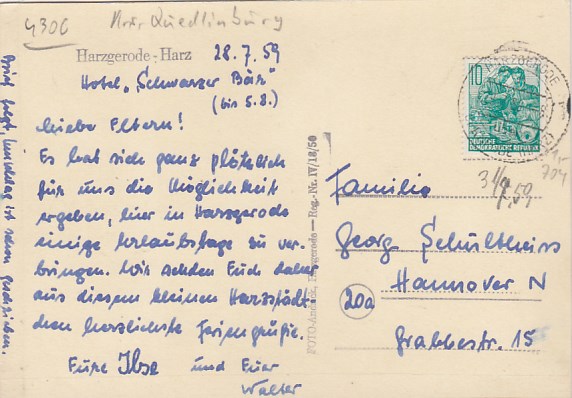 4306
Krsr Quedlinburg
Harzgerode - Harz
28.7.59
Hotel „Schwarzer Bär"
(bis 5.8.)
Liebe Eltern!
Es hat sich ganz plötzlich
für uns die Möglichkeit
ergeben, hier in Harzgerode
einige Urlaubstage zu ver-
bringen. Wir senden Euch daher
aus diesem kleinen Harzstädt-
chen herzlichste Feriengrüße.
Eure Ilse und Euer
Walter
Brief folgt, Umschlag ist schon geschrieben.
FOTO- Harzgerode — Reg.-Nr. IV/18/50
10
DEUTSCHE
DEMOKRATISCHE REPUBLIK
HARZGERODE
Familie
Georg Schultheiss
Hannover N
20a
Grabbestr. 15